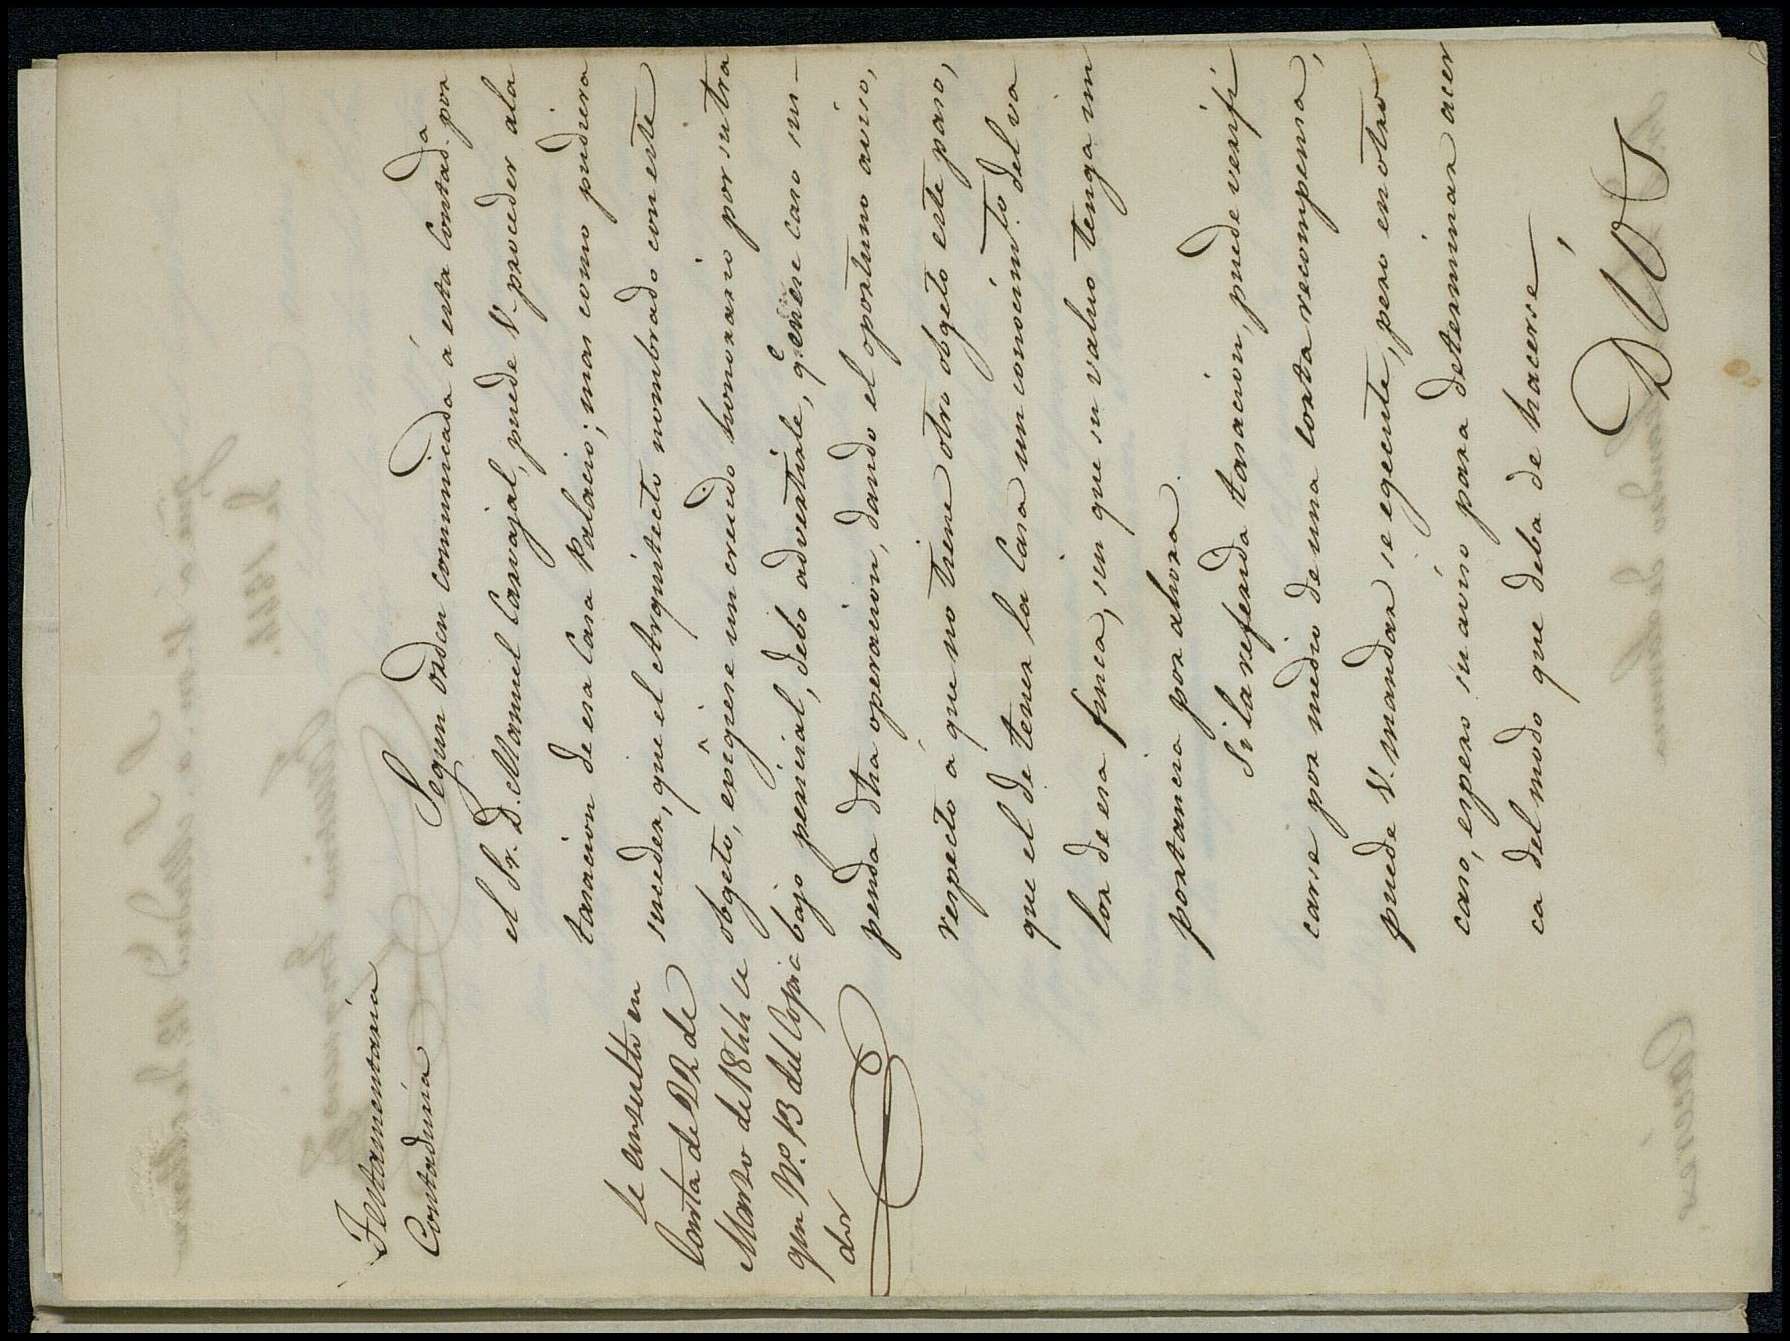 Testamentaria
Contaduria
Segun orden communicada á esta Contad.a por
el Sr. D. Manuel Carvajal, puede V. proceder ala
tasacion de esa Casa Palacio; mas como pudiera
suceder, que el Arquitecto nombrado con este
obgeto, exigiese un crecido honorario por su tra
bajo pericial, debo advertirle, q.e en ese caso sus-
penda dha operacion, dando el oportuno aviso,
respecto á que no tiene otro obgeto este paso,
que el de tener la Casa un conocim.to del va
lor de esa finca, sin que su valuo tenga im
portancia por ahora.
Si la referida tasacion, puede verifi
carse por medio de una corta recompensa,
puede V. mandar se egecute, pero en otro
caso, espero su aviso para determinar acer
ca del modo que deba de hacerse
Dios
Se consultó en
Carta de 22 de
Marzo de 1844 se
gun N.o 13 del Copia
dor